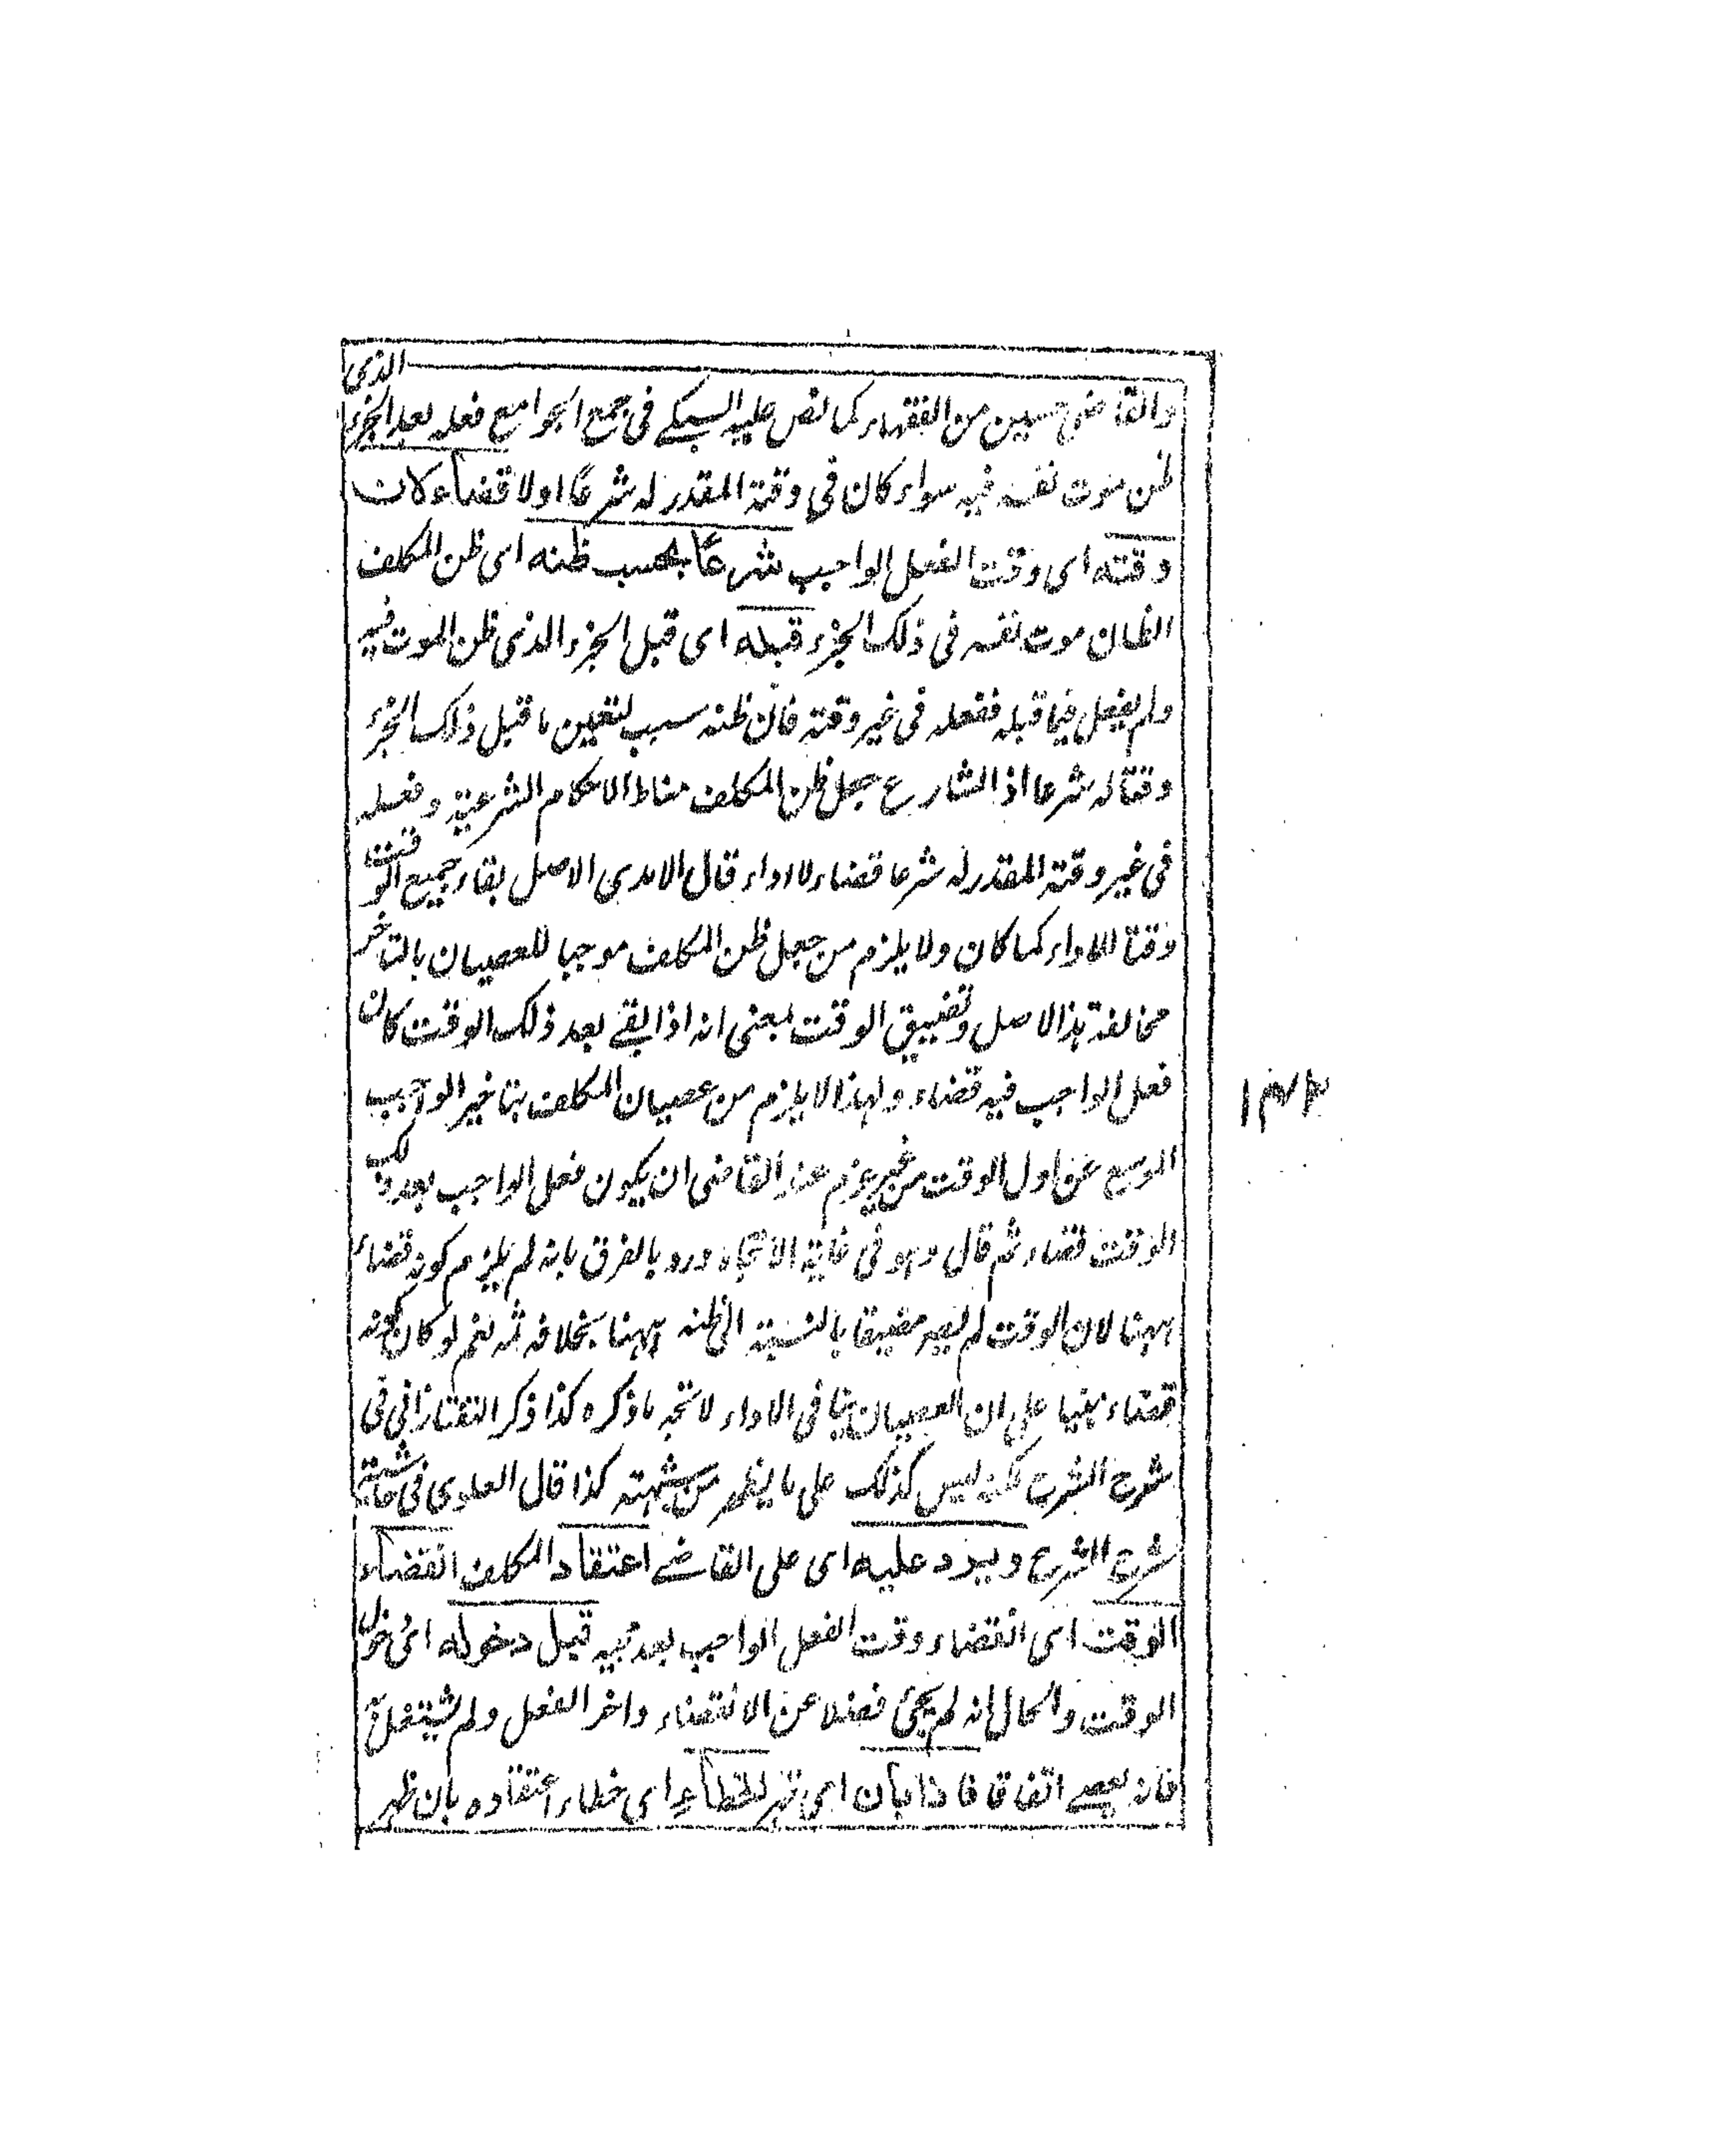 والقاضی حسین من الفقهاء کما نص علیه السبکے فی جمع الجوامع فعله بعد الجزء الذی
ظن موت نفسه فیه سواء کان فی وقته المقدر له شرعًا اولا قضاء لان
وقته ای وقت الفعل الواجب شرعًا بحسب ظنه ای ظن المکلف
الظان موت نفسه فی ذلک الجزء قبله ای قبل الجزء الذی ظن الموت فیه
ولم یفعل فیما قبله ففعله فی غیر وقته فان ظنه سبب لتعین ما قبل ذلک الجزء
وقتا له شرعا اذ الشارع جعل ظن المکلف مناط الاحکام الشرعیة وفعله
فی غیر وقته المقدر له شرعا قضاء لا اداء قال الامدی الاصل بقاء جمیع الوقت
وقتا للاداء کما کان ولا یلزم من جعل ظن المکلف موجبا للعصیان بالتاخر
مخالفة هذا الاصل وتضییق الوقت بمعنی انه اذا بقے بعد ذلک الوقت کان
فعل الواجب فیه قضاء ولهذا لا یلزم من عصیان المکلف بتاخیر الواجب
الموسع عن اول الوقت من غیر عزم عند القاضی ان یکون فعل الواجب بعد ذلک
الوقت قضاء ثم قال وهو فی غایة الاتجاه ورد بالفرق بانه لم یلزم کونه قضاء
ههنا لان الوقت لم یصر مضیقا بالنسبة الی ظنه ههنا بخلافه ثمه نعم لو کان کونه
قضاء مبنیا علی ان العصیان ینافی الاداء لاتجه ما ذکره کذا ذکر التفتازانی فی
شرح الشرح لکنه لیس کذلک علی ما یظهر من شبهته کذا قال العلوی فی حاشیة
شرح الشرح ویرد علیه ای علی القاضے اعتقاد المکلف انقضاء
الوقت ای انقضاء وقت الفعل الواجب بعد مجیه قبل دخوله ای دخول
الوقت والحال انه لم یجئ فضلا عن الانقضاء واخر الفعل ولم یشتغل به
فانه یعصے اتفاقا فاذا بان ای ظهر الخطاء ای خطاء اعتقاده بان ظهر
۱۴۲